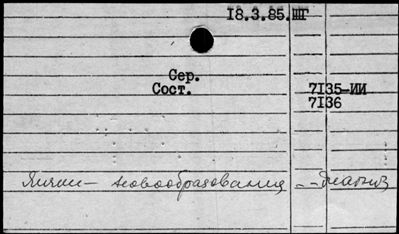 18.3.85.ШГ
Сер.
Сост.
7135-ИИ
7136
Яички — новообразования -- диагноз